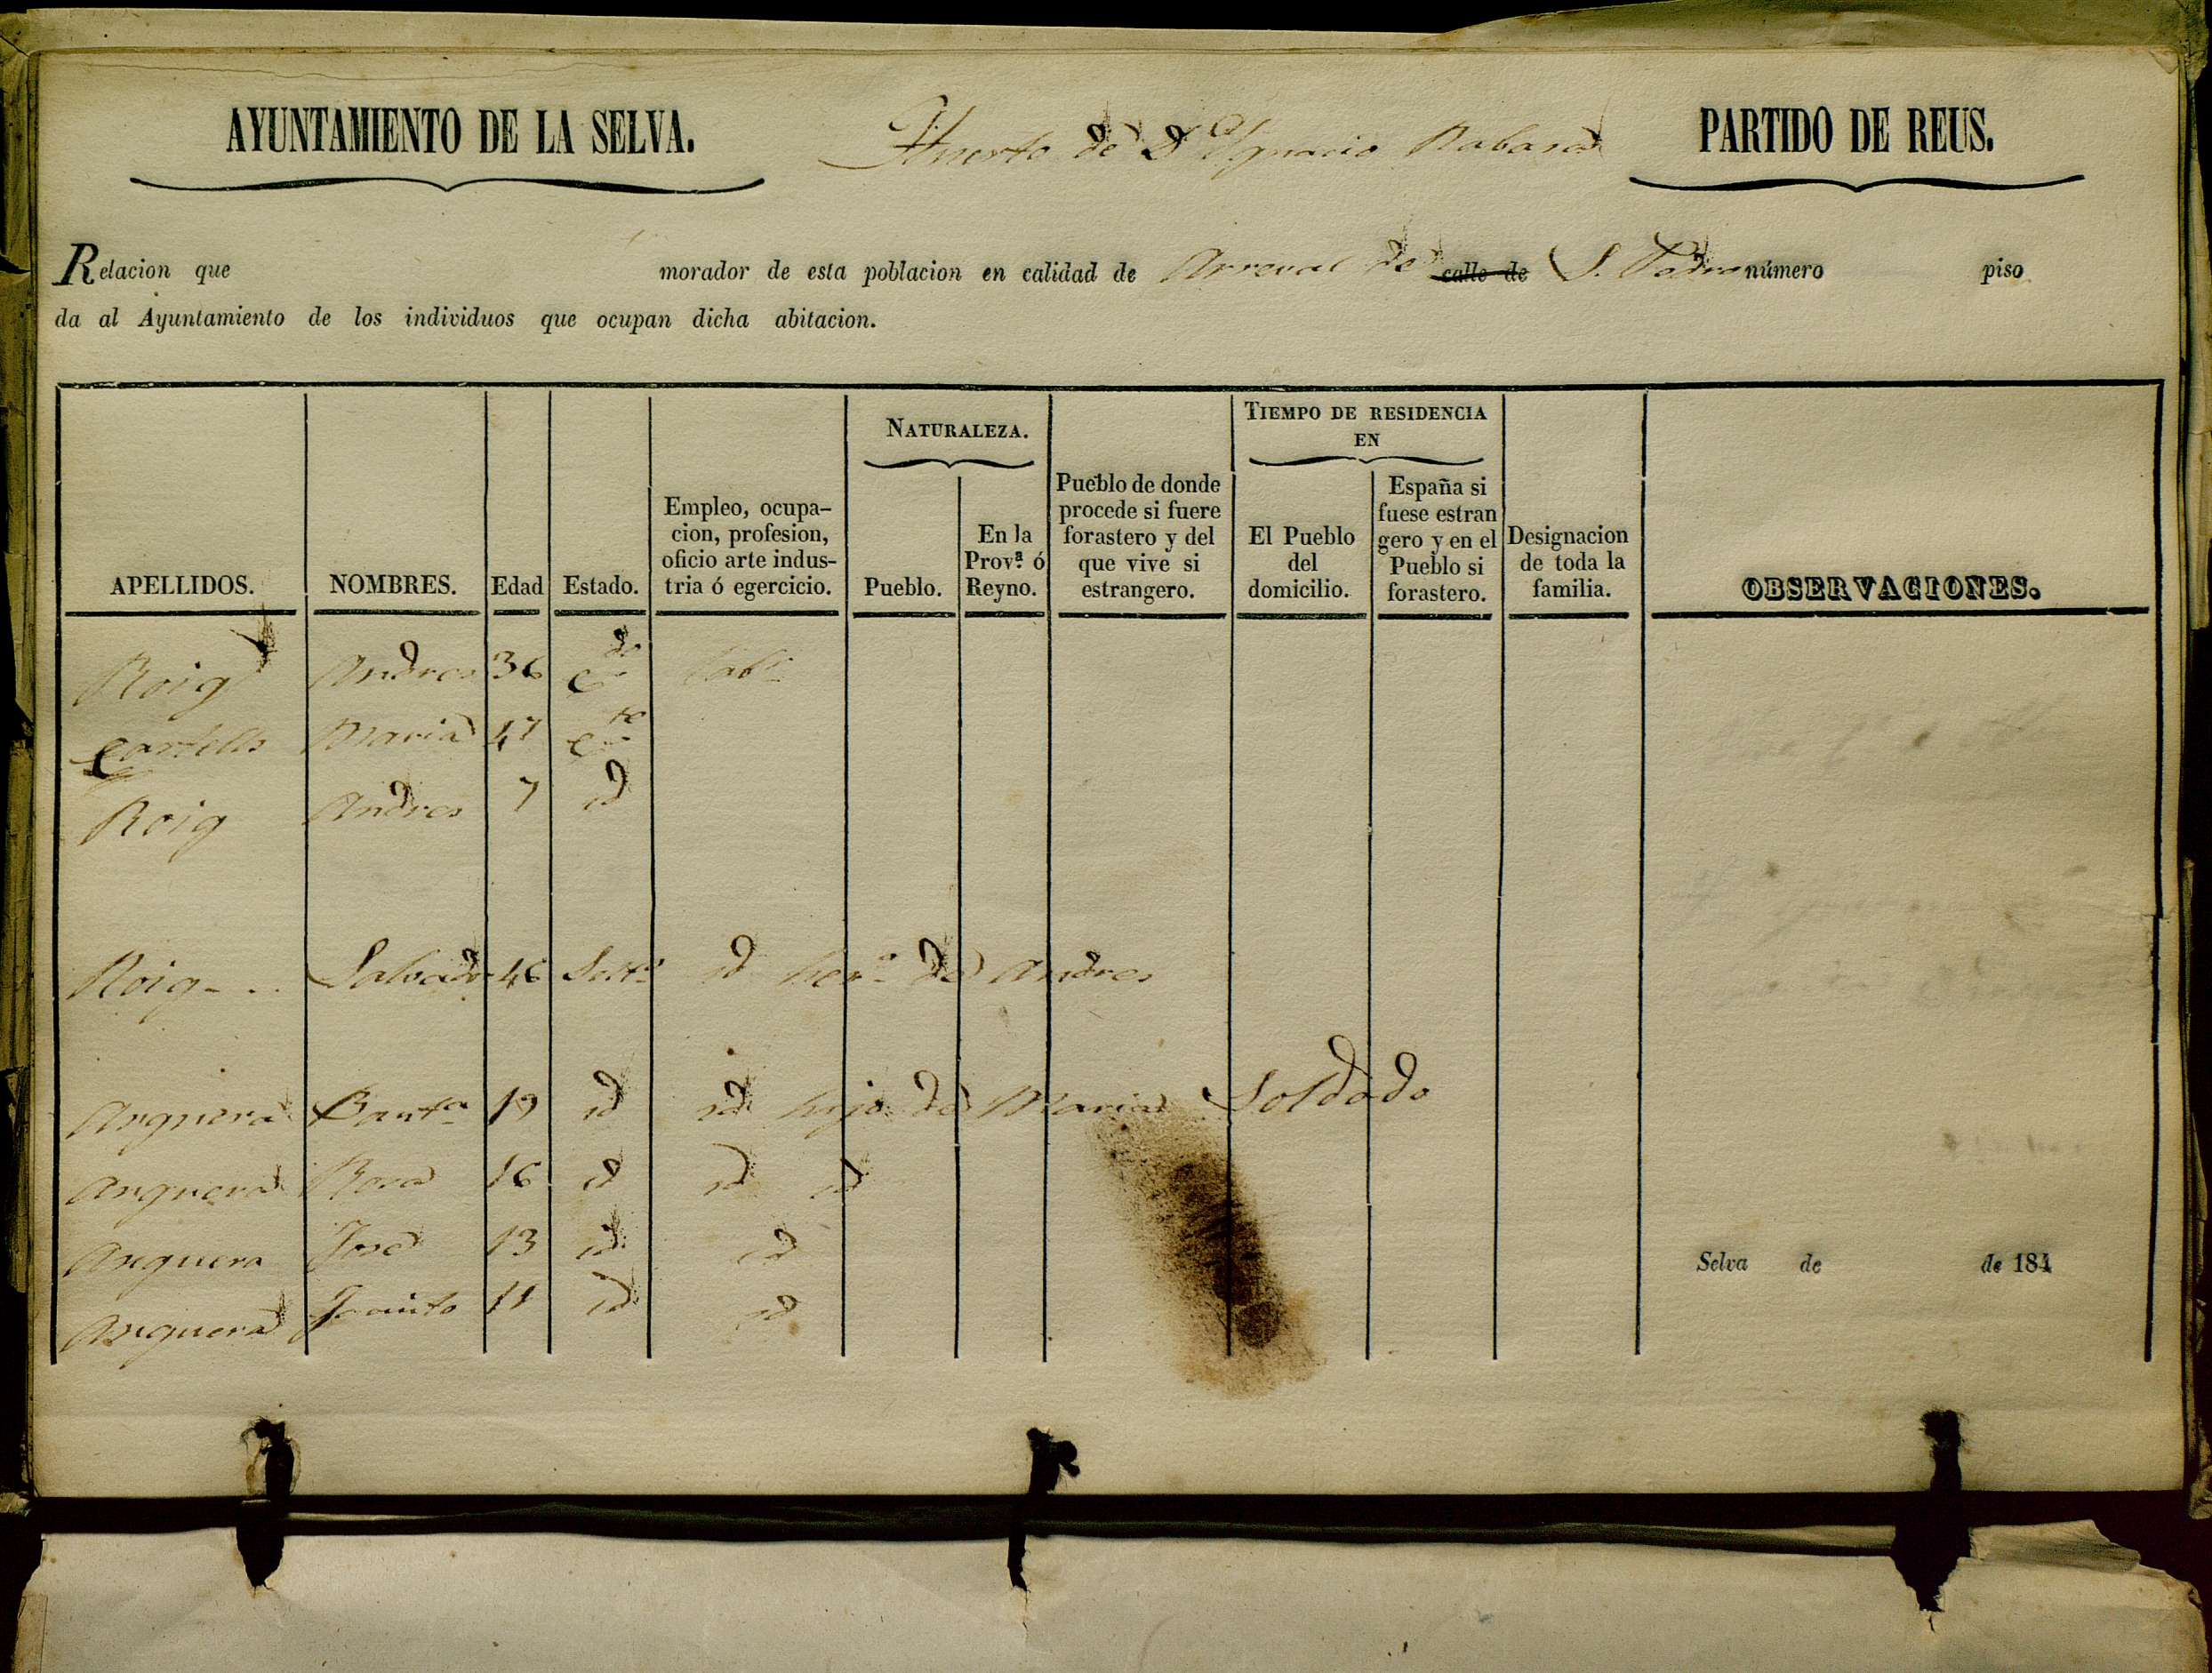 AYUNTAMIENTO DE LA SELVA.
Huerto de Dn Ygnacio Rabasa
PARTIDO DE REUS.
Relacion que morador de esta poblacion en calidad de Arreval de calle de S. Pedro número piso
da al Ayuntamiento de los individuos que ocupan dicha abitacion.
APELLIDOS. NOMBRES. Edad Estado. Empleo, ocupa-cion, profesion, oficio arte indus-tria ó egercicio. NATURALEZA. Pueblo. En la Prov.ª ó Reyno. Pueblo de donde procede si fuere forastero y del que vive si estrangero. TIEMPO DE RESIDENCIA EN El Pueblo del domicilio. España si fuese estran gero y en el Pueblo si forastero. Designacion de toda la familia. OBSERVACIONES.
Roig Andres 36 C.do Labr
Maria 47
Roig Andres 7 id
Roig Salvador 46 Solt.o id her.o de Andres
Arguera Baut.a 19 id id hijo de Maria Soldado
Arguera Rosa 16 id id id
Arguera José 13 id id
Arguera Jacinto 11 id id
Selva de de 184